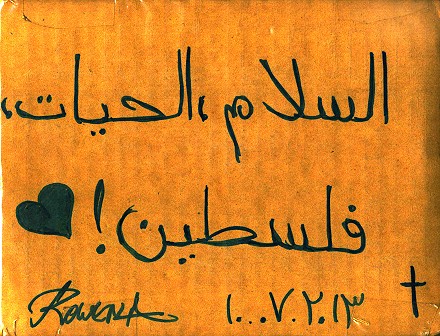 السلام، الحيات،
فلسطين!
Rowena ١...٧.٢.١٣